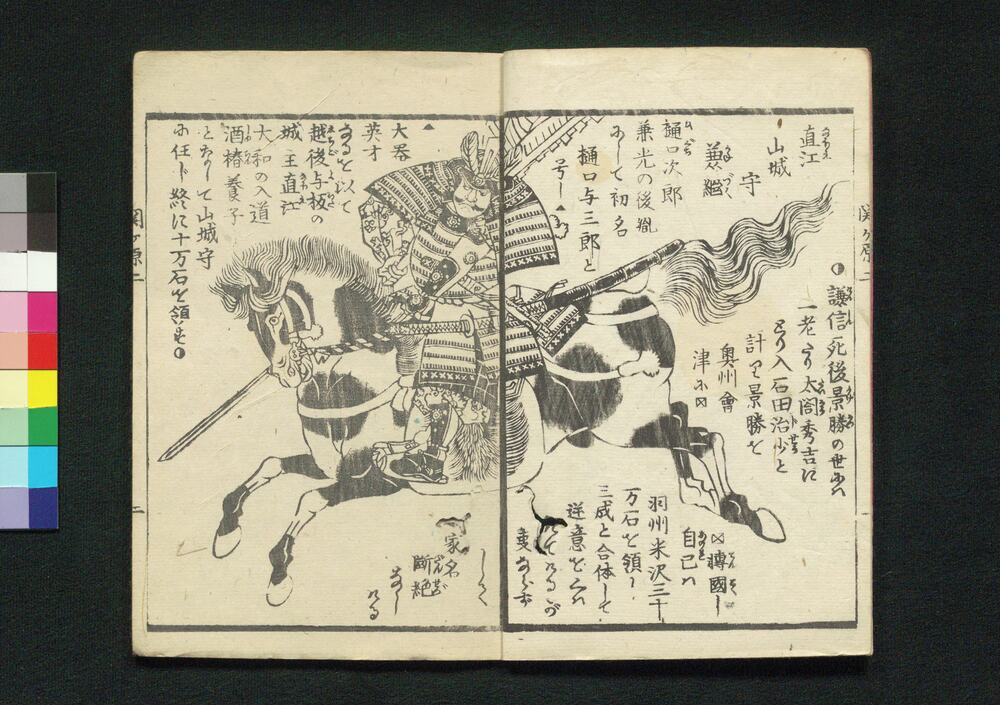 直江
山城
守
兼継
樋口次郎
兼光の後胤
にして初名
樋口与三郎と
号し▲
▲
大器
英才
なるを以て
越後与板の
城主直江
大和の入道
酒椿養子
となりて山城守
に任じ終に十万石を領す
謙信死後景勝の世には
一老より太閤秀吉に
とり入石田治少と
計り景勝を
奥州會
津に⊠
⊠轉國し
自己は
羽州米沢三十
万石を領し
三成と合体して
逆意を
変ならず
して
家名
断絶
なし
ける
関ヶ原二
関ヶ原二